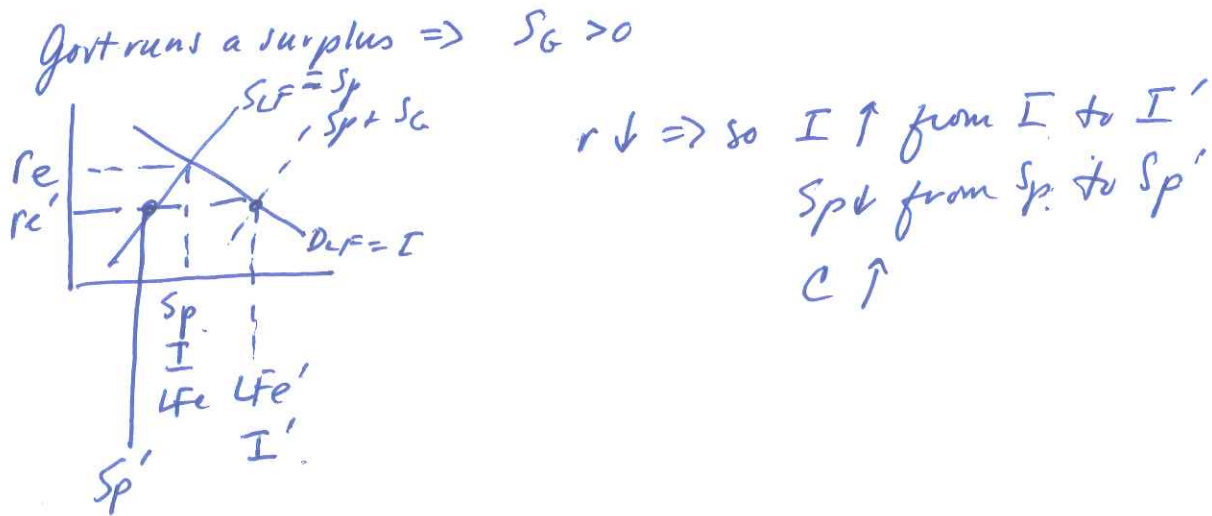 Govt runs a surplus => S_G > 0
S_LF = Sp
Sp + S_G
re
re'
D_LF = I
Sp.
I
LFe
LFe'
I'.
Sp'
r ↓ => so I ↑ from I to I'
Sp↓ from Sp. to Sp'
C ↑